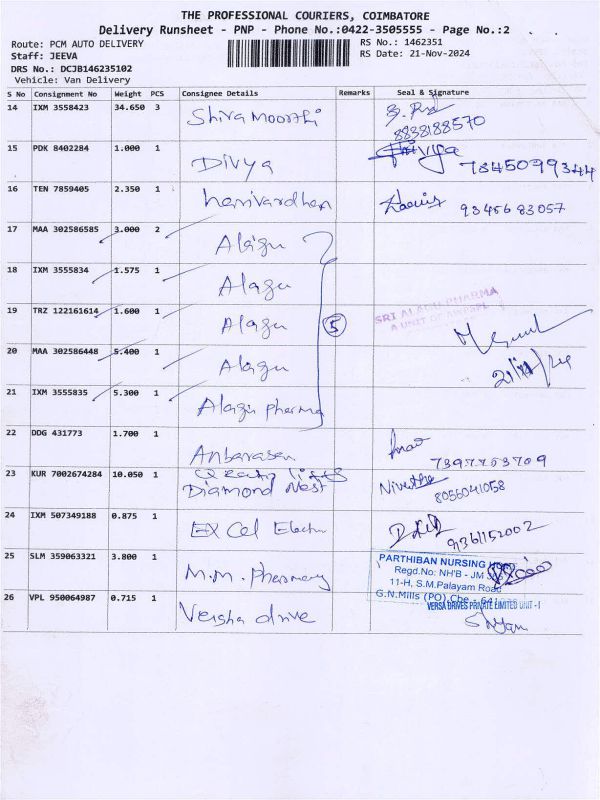 THE PROFESSIONAL COURIERS, COIMBATORE
Delivery Runsheet - PNP - Phone No.:0422-3505555 - Page No.:2
Route: PCM AUTO DELIVERY
RS No.: 1462351
Staff: JEEVA
RS Date: 21-Nov-2024
DRS No.: DCJB146235102
Vehicle: Van Delivery
S No Consignment No Weight PCS Consignee Details Remarks Seal & Signature
14 IXM 3558423 34.650 3 Shivamoorthi
8838188570
15 PDK 8402284 1.000 1 Divya Divya 7845099344
16 TEN 7859405 2.350 1 harivardhan 93456 83057
17 MAA 302586585 3.000 2 Alagu
18 IXM 3555834 1.575 1 Alagu
19 TRZ 122161614 1.600 1 Alagu 5 SRI ALAGU PHARMA
A UNIT OF
20 MAA 302586448 5.400 1 Alagu 21/11/24
21 IXM 3555835 5.300 1 Alagu pharma
22 DDG 431773 1.700 1 Anbarasan 7397753709
23 KUR 7002674284 10.050 1 Diamond Nest Nivethe 8056041058
24 IXM 507349188 0.875 1 Excel Electro 9361152002
25 SLM 359063321 3.800 1 M.M. Pharmacy PARTHIBAN NURSING
Regd.No: NH'B - JM
11-H, S.M.Palayam Road
G.N.Mills (PO), Cbe - 641
26 VPL 950064987 0.715 1 Versha drive VERSA DRIVES PRIVATE LIMITED UNIT - I